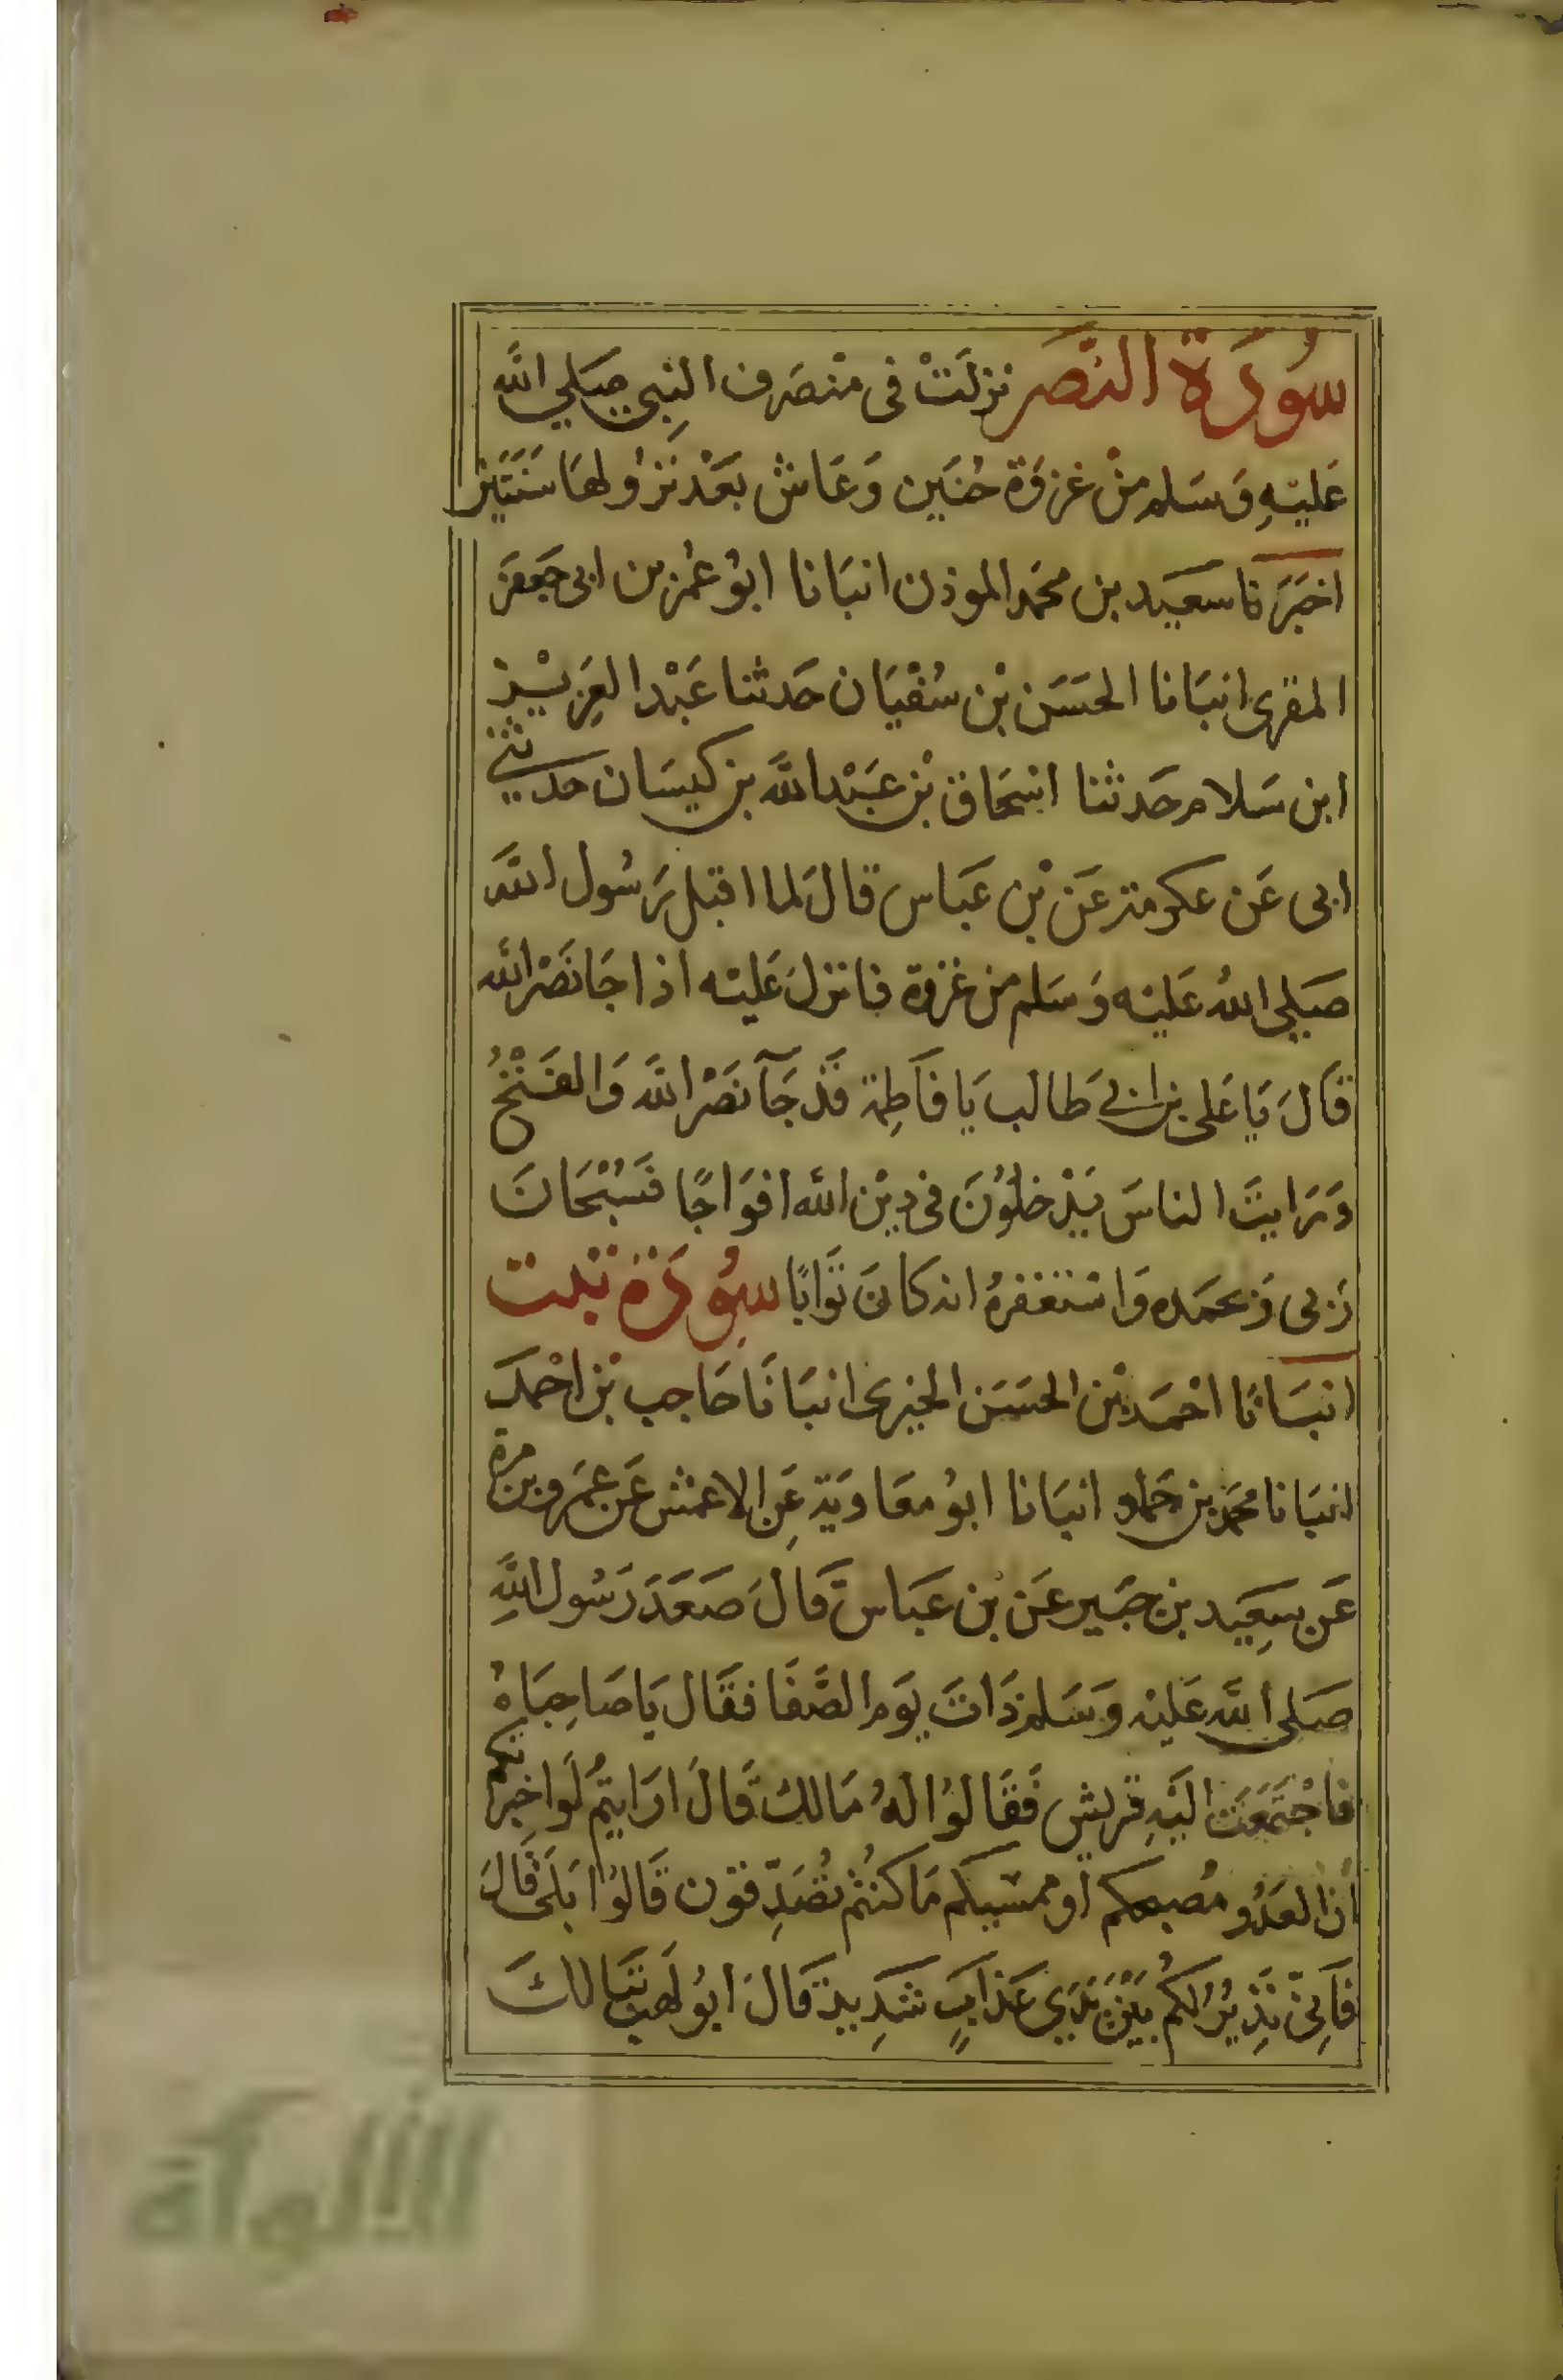 سُورَة النَّصر نزلَتْ فى منْصَرف النِبى صَلي الله
عَليْهِ وَسَلم منْ غزوَة حُنَين وَعَاش بَعْد نزُولهَا سَنَتَيْن
اخبَرَنا سعيَد بن محمَد الموذن انبَانا ابوُ عُمَر بن ابى جَعفَر
المقرى انبَانا الحَسَن بْن سُفْيَان حَدثنا عَبْد العَزيْز
ابن سَلام حَدثنا اسْحَاق بْن عَبْد الله بن كيسَان حدثنى
ابى عَن عكرمة عَن بْن عَبَاس قالَ لما اقبَل رَسُول الله
صَلى اللهُ عَليْه وَسَلم من غزوة فانزلَ عَليْه اذا جَا نصْر الله
قَالَ يَا عَلى بن ابى طَالب يَا فَاطِمة قَدْ جَآ نصْر الله وَالفَتْحُ
وَرَايتَ الناسَ يَدْخلوُنَ فى دِيْن الله افوَاجًا فسُبْحَانَ
رَبى وَبحمَده وَاسْتغفرهُ انه كانَ توَابًا سُورَة تبت
انبَانَا احْمَد بْن الحسَن الحيرى انبَانَا حَاجب بْن احْمَد
انبَانا محمَد بن حَماد انبَانا ابوُ معَاويَة عَنِ الاعمش عَن عَمرو بن مرة
عَن سَعِيَد بن جبَير عَن بْن عَبَاس قَالَ صَعَدَ رَسُول اللهِ
صَلى اللهَ عَليْه وَسَلم ذَاتَ يَوم الصَّفَا فقَال يَا صَاحِبَاهُ
فاجْتمَعَت اليَهِ قريش فَقَالوُا لهُ مَالك قَالَ ارَايتمُ لَو اخبرتكم
انّ العَدُو مُصبحكم اوممسيكم مَا كنتُم تُصَدِّقون قَالوُا بَلَى قَالَ
فَاِنّى نَذِيرٌ لكمُ بَيْنَ يَدَي عَذَابٍ شَدِيد قَالَ ابوُ لَهَب تبًا لكَ